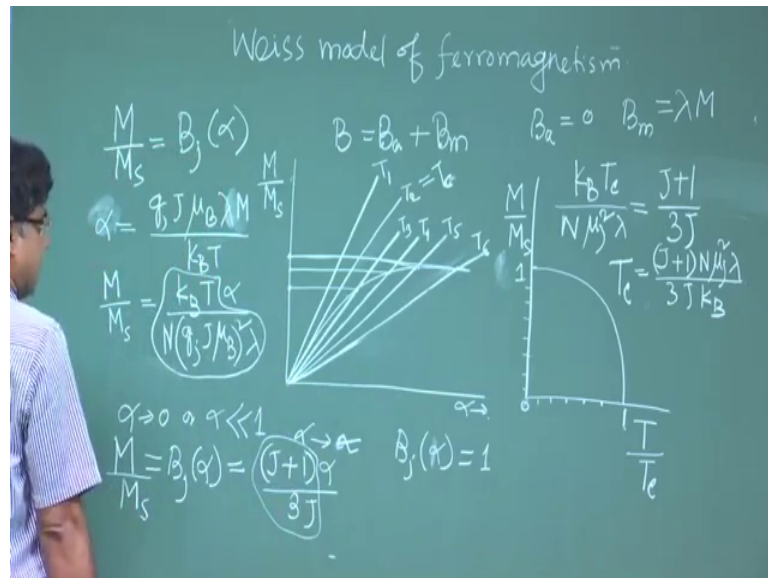 Weiss model of ferromagnetism.
M/M_S = B_j(α)
α = g_j J μ_B λ M / k_B T
M/M_S = k_B T α / N(g_j J μ_B)² λ
α→0 or α≪1
M/M_S = B_j(α) = (J+1)α / 3J
α→∝
B_j(α) = 1
B = B_a + B_m
M/M_S
T₁
T₂ = T_c
T₃
T₄
T₅
T₆
α→
B_a = 0 B_m = λM
k_B T_c / N μ_j² λ = J+1 / 3J
T_c = (J+1) N μ_j² λ / 3J k_B
M/M_S
1
0
1
T/T_c